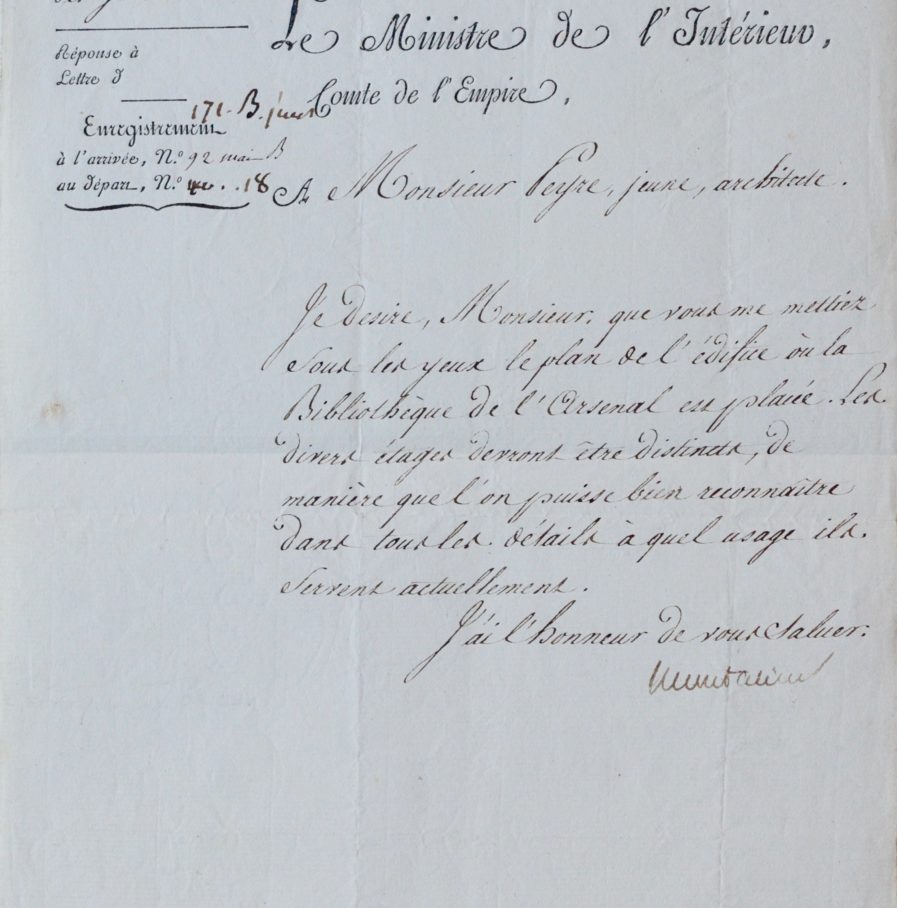 Le Ministre de l'Intérieur,
Réponse à
Lettre d
Comte de l'Empire,
171. B.
Enregistrement
à l'arrivée, N.º 92 mai B
au départ, N.º 18
A Monsieur Peyre, jeune, architecte.
Je desire, Monsieur, que vous me mettiez
sous les yeux le plan de l'édifice où la
Bibliothèque de l'Arsenal est placée. Les
divers étages devront être distincts, de
manière que l'on puisse bien reconnaître
dans tous les détails à quel usage ils
servent actuellement.
J'ai l'honneur de vous saluer.
Montalivet